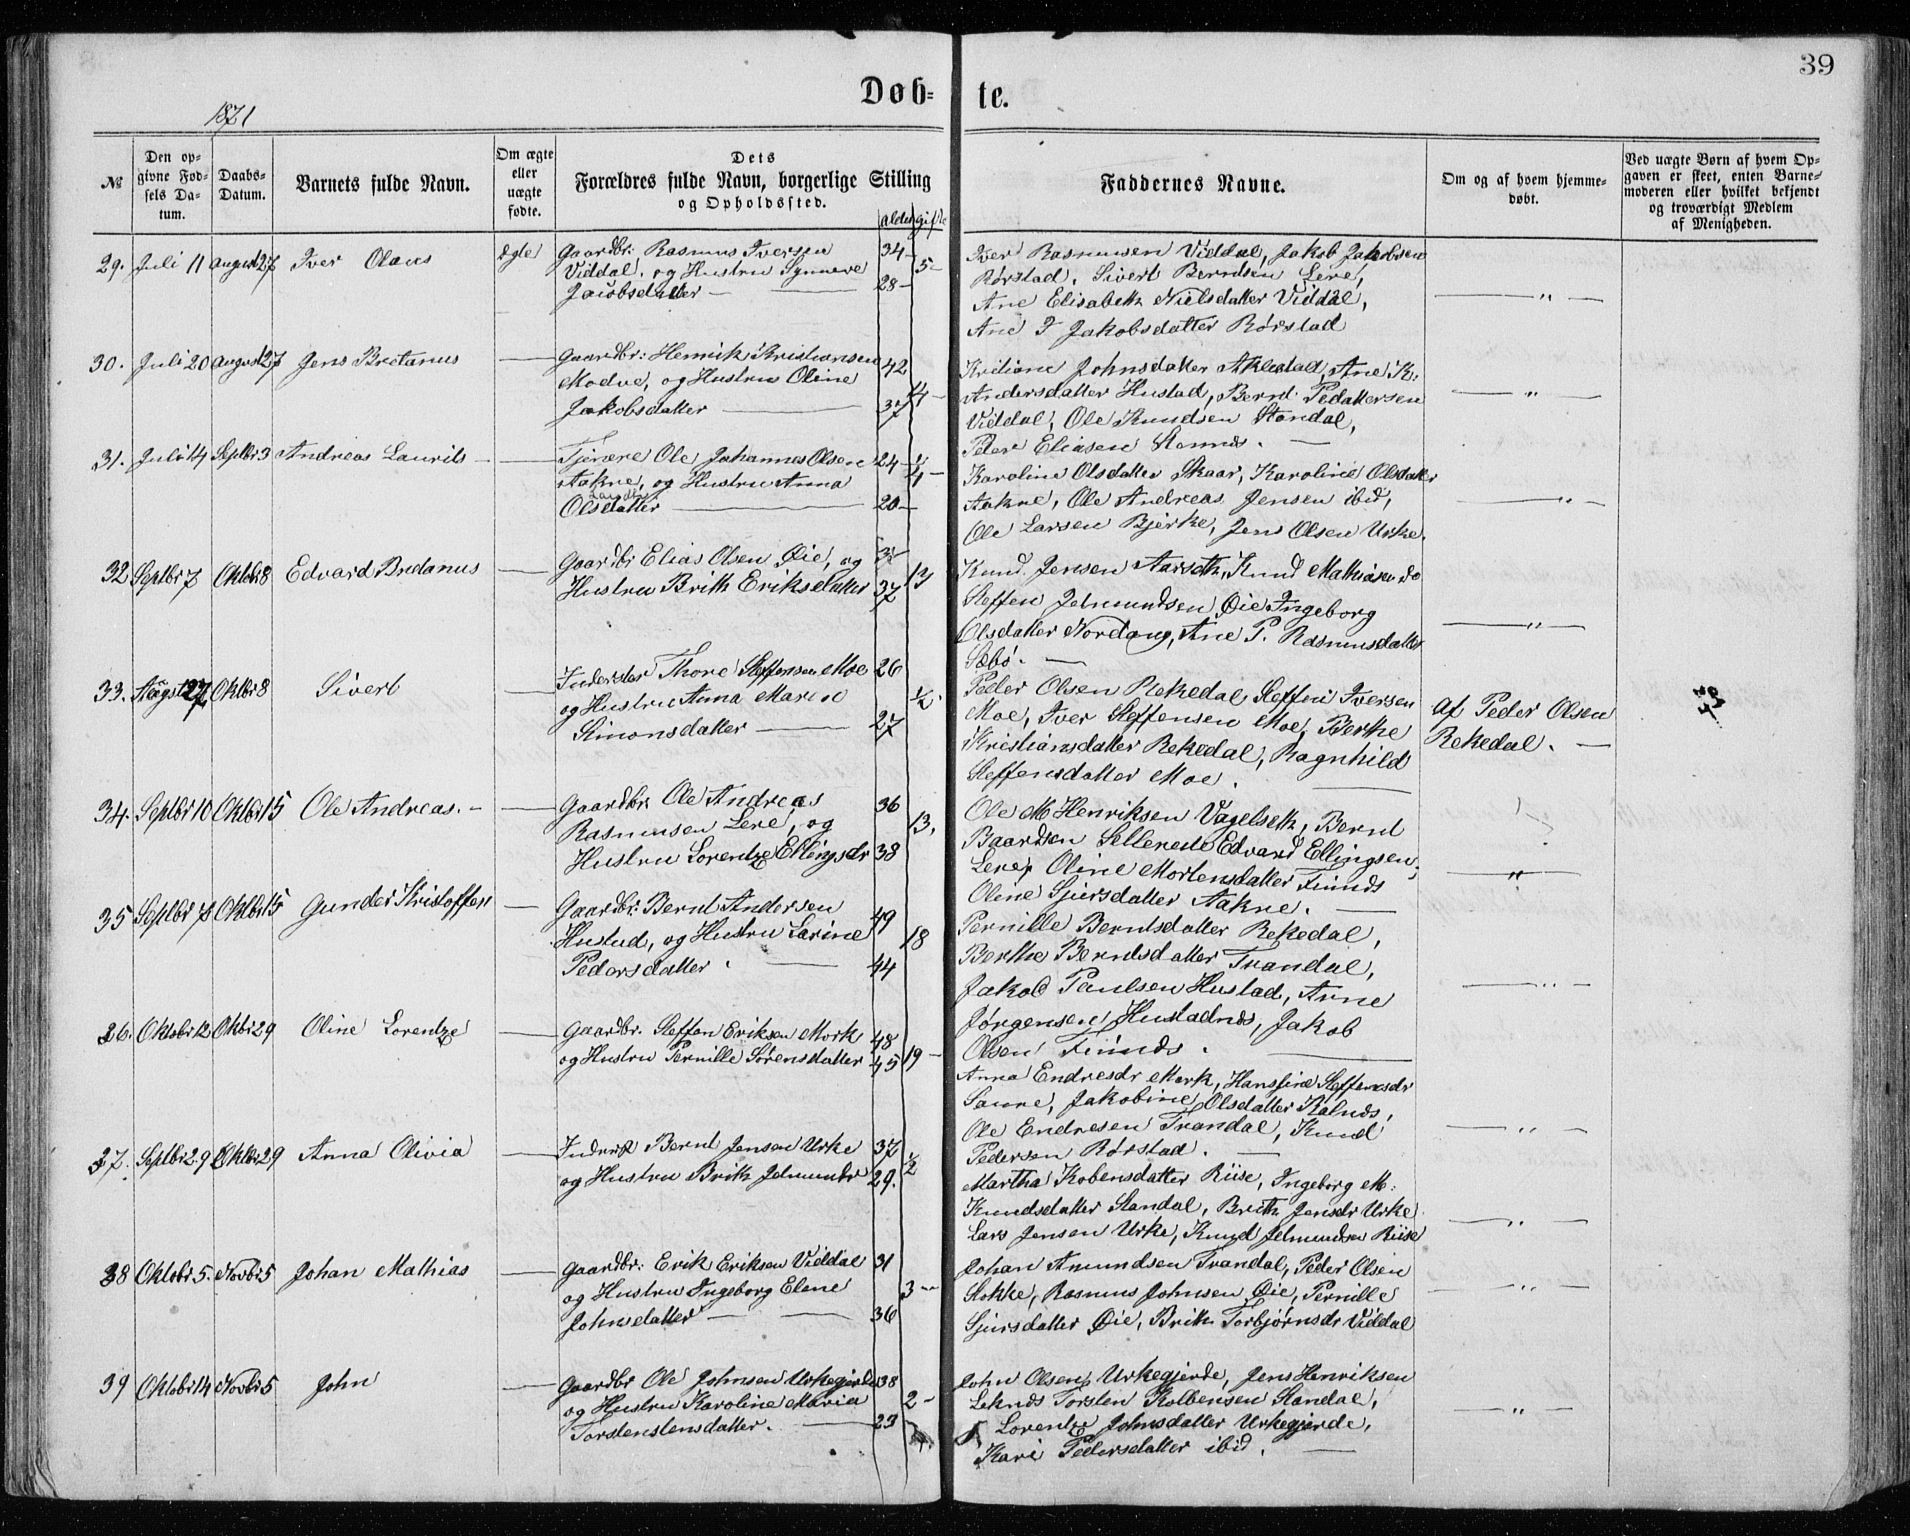 39
Døb-
te.
1871
№
Den op-
givne Fød-
sels Da-
tum.
Daabs-
Datum.
Barnets fulde Navn.
Om ægte
eller
uægte
fødte.
Dets
Forældres fulde Navn, borgerlige Stilling
og Opholdssted.
alder gifte
Faddernes Navne.
Om og af hvem hjemme-
døbt.
Ved uægte Børn af hvem Op-
gaven er skeet, enten Barne-
moderen eller hvilket bekjendt
og troværdigt Medlem
af Menigheden.
29. Juli 11 August 27 Iver Olaus
Gaardbr: Rasmus Iversen 34
Viddal, og Hustru Synneve 5-
Jacobsdatter - 28-
Iver Rasmusen Viddal, Jakob Jakobsen
Rørstad, Sivert Berndsen Lere,
Ane Elisabeth Nielsdatter Viddal, — " —
Ane I Jakobsdatter Rørstad
30. Juli 20 August 27 Jens Bretanus —
Gaardbr: Henrik Kristiansen 42
Modve, og Hustru Oline 14-
Jakobsdatter — 37
Johnsdatter Aklestad, Ane K.
Andersdatter Hustad, Bernd — " —
Viddal, Ole Knudsen Standal,
Peder Eliasen Stennds. —
31. Juli 14 Septbr 3 Andreas Laurits —
Tjenere Ole Johannes Olsen 24
Aakne, og Hustru Anna
Olsdatter — 20-
Karoline Olsdatter Skaar, Karoline Olsdatter
Aakne, Ole Andreas Jensen ibid, — " —
Ole Larsen Bjerke, Jens Olsen Urke.
32 Septbr 7 Oktbr 8 Edvard Bredanus —
Gaardbr Elias Olsen Øie, og
Hustru Brith Eriksdatter 37 13
Knud Jensen Aarseth, Knud Mathiasen do
Steffen Jelmundsen Øie, Ingeborg
Olsdatter Nordang, Ane P. Rasmusdatter — " —
Sæbø. —
33. August 27 Oktbr 8 Sivert —
Inderster Thore Steffensen Moe 26
og Hustru Anna Marie ½.
Simonsdatter — 27
Peder Olsen Rekedal, Steffen Iversen
Moe, Iver Steffensen Moe, Berthe
Kristiansdatter Rekedal, Ragnhild
Steffensdatter Moe. —
Af Peder Olsen
Rekedal. —
34. Septbr 10 Oktbr 15 Ole Andreas. - —
Gaardbr. Ole Andreas 36
Rasmusen Lere, og 13,
Hustru Lorentze Ellingsdr 38
Ole M Henriksen Vagelseth, Bernt
Baardsen Sellereite Edvard Ellingsen,
Lere, Oline Mortensdatter Finnds — " —
Oline Sjursdatter Aakne. —
35 Septbr 8 Oktbr 15 Gunder Kristoffen —
Gaardbr: Bernt Andersen 49
Hustad, og Hustru Larine 18
Pedersdatter. — 44
Pernille Berntsdatter Rekedal,
Berthe Berndsdatter Trandal,
Jakob Paulsen Hustad, Arne — " —
Jørgensen Hustadnds, Jakob
Olsen Finnds. —
36. Oktobr 12 Oktbr 29 Oline Lorentze —
Gaardbr: Steffen Eriksen Mork 48
og Hustru Pernille Sørensdatter 45 19-
Anna Endresdr Mork, Hansine Steffensdr
Saure, Jakobine Olsdatter Kalnds,
Ole Endresen Trandal, Knud — " —
Pedersen Rørstad. —
37. Septbr 29 Oktbr 29 Anna Olivia —
Inderst Bernt Jensen Urke 37
og Hustru Brith Jelmundr 29. ½
Martha Kobensdatter Riise, Ingeborg M:
Knudsdatter Standal, Brith Jensdr Urke
Lars Jensen Urke, Knud Jelmundsen Riise — " —
38 Oktobr 5. Novbr 5 Johan Mathias —
Gaardbr: Erik Eriksen Viddal 31
og Hustru Ingeborg Elene 3-
Johnsdatter — 36
Johan Amundsen Trandal, Peder Olsen
Stokke, Rasmus Johnsen Øie, Pernille — " —
Sjursdatter Øie, Brith Torbjørnsdr Viddal
39 Oktobr 14 Novbr 5 John —
Gaardbr Ole Johnsen Urkegjerde 38
og Hustru Karoline Maria 2-
Torstenstensdatter. — 23
John Olsen Urkegjerde, Jens Henriksen
Leknds Torsten Kolbensen Standal,
Lorentze Johnsdatter Urkegjerde, — " —
Kari Pedersdatter ibid. —